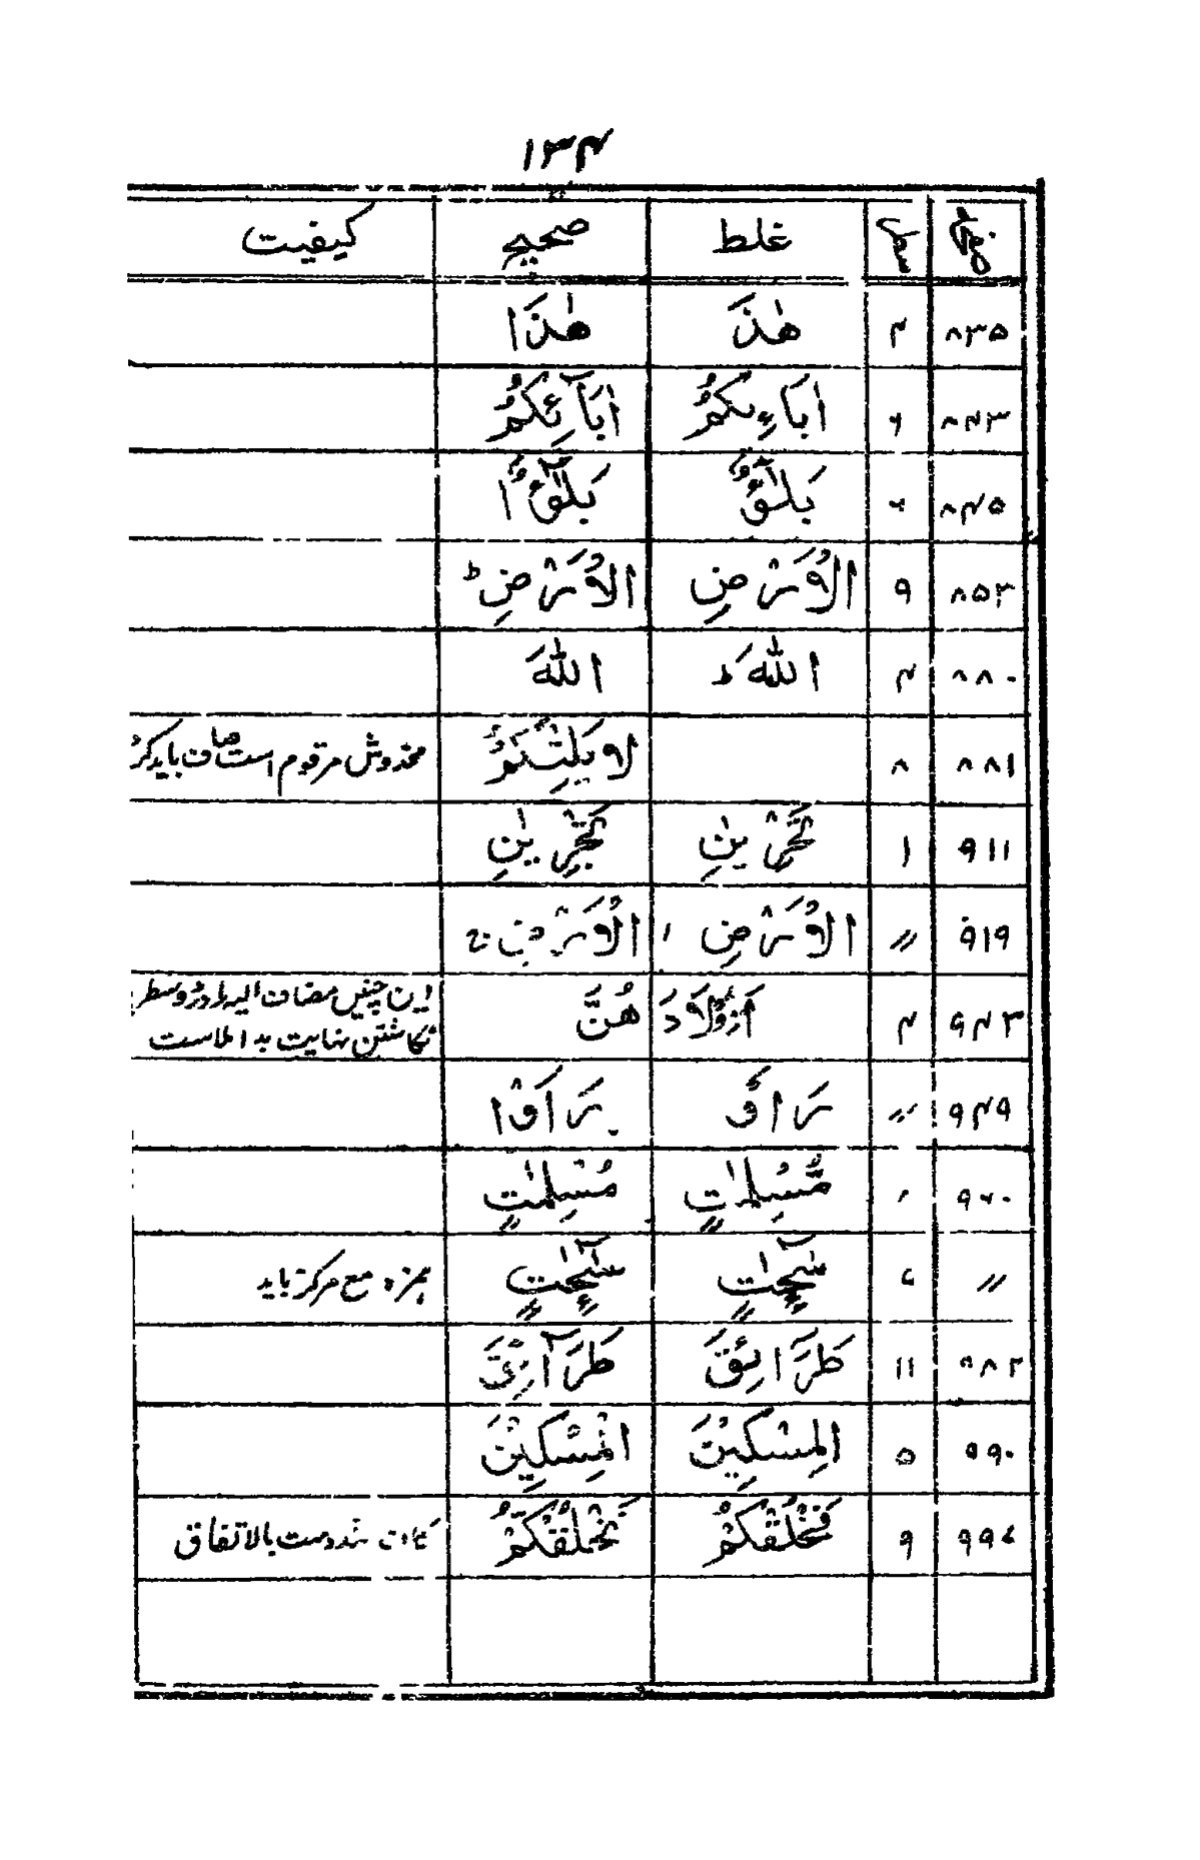 ۱۳۴
صفحہ سطر غلط صحیح کیفیت
۸۳۵ ۴ هٰذَ هٰذَا
۸۴۳ ۶ اٰبَاءِىكُمْ اٰبَآئِكُمْ
۸۴۵ ۶ بَلٰٓؤٌ بَلٰٓؤٌا
۸۵۳ ۹ الْاَرْضِ الْاَرْضِ ط
۸۸۰ ۴ اللّٰهَ ط اللّٰهَ
۸۸۱ ۸ لَا يَلِتْكُمْ مخدوش مرقوم است صاف باید کرد
۹۱۱ ۱ تَجْرِيٰنِ
۹۱۹ // الْاَرْضِ الْاَرْضِ ج
۹۴۳ ۴ اَوْلَادَ هُنَّ این چنیں مضاف الیہ را در دو سطر
نگاشتن نہایت بد املاست
۹۴۹ // رَاقَ رَاقَا
۹۶۰ مُّسْلِمٰتٍ مُسْلِمٰتٍ
// سٰٓئِحٰتٍ سٰٓئِحٰتٍ ہمزہ مع مرکز باید
۹۸۲ ۱۱ طَرَائِقَ طَرَآئِقَ
۹۹۰ ۵ الْمِسْكِيْنَ الْمِسْكِيْنَ
۹۹۶ ۹ نَخْلُقْكُّمْ نَخْلُقْكُّمْ بالاتفاق